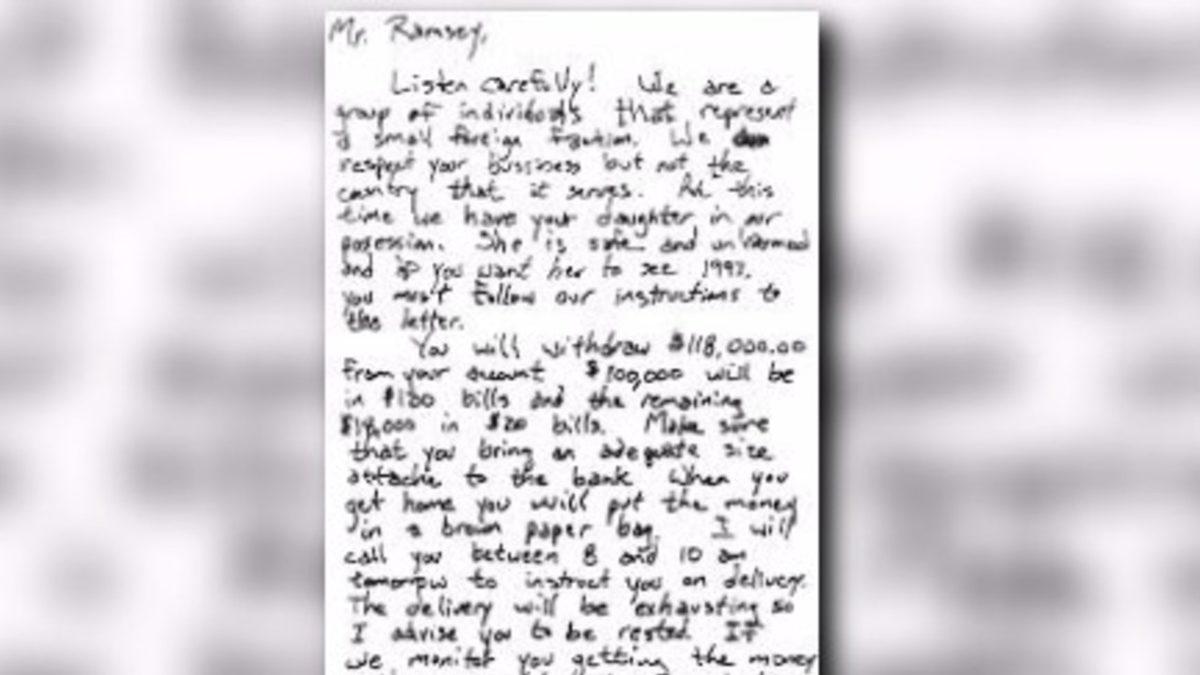 Mr. Ramsey,
Listen carefully! We are a
group of individuals that represent
a small foreign faction. We
respect your bussiness but not the
country that it serves. At this
time we have your daughter in our
posession. She is safe and unharmed
and if you want her to see 1997,
you must follow our instructions to
the letter.
You will withdraw $118,000.00
from your account. $100,000 will be
in $100 bills and the remaining
$18,000 in $20 bills. Make sure
that you bring an adequate size
attache to the bank. When you
get home you will put the money
in a brown paper bag. I will
call you between 8 and 10 am
tomorrow to instruct you on delivery.
The delivery will be exhausting so
I advise you to be rested. If
we monitor you getting the money